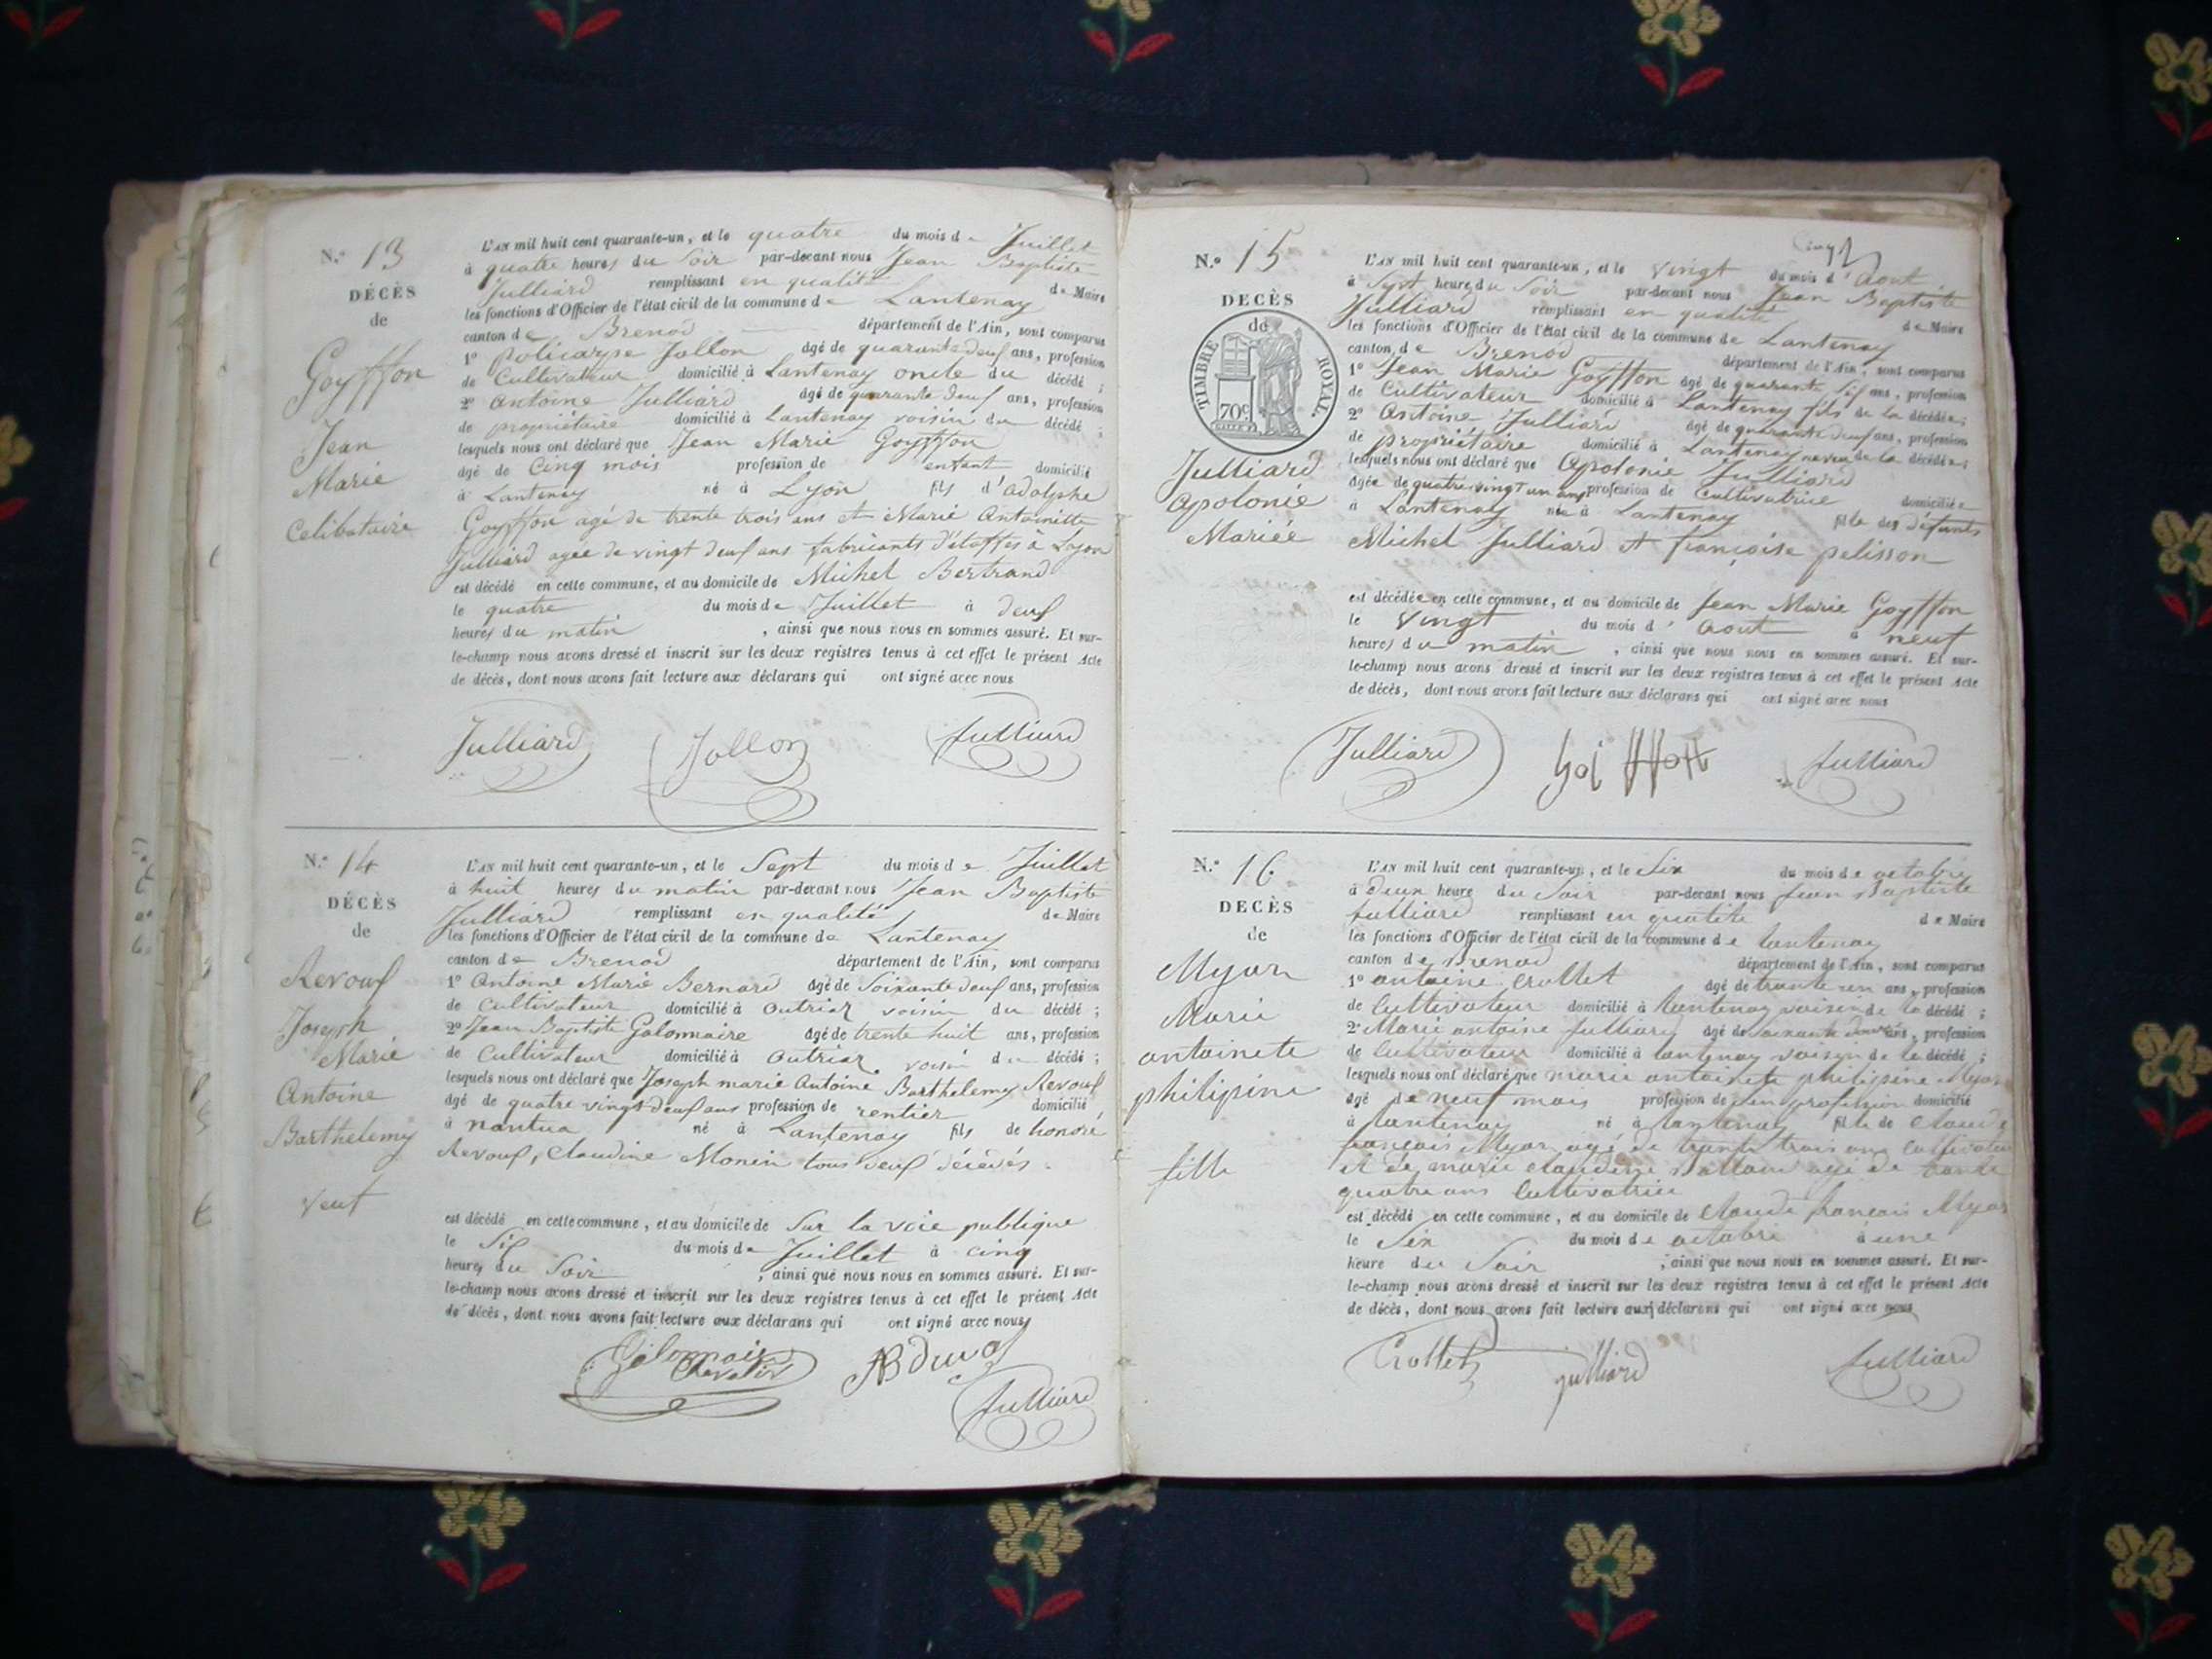 N.° 13
DÉCÈS
de
Goyffon
Jean
Marie
Celibataire
L'AN mil huit cent quarante-un, et le quatre du mois de Juillet
à quatre heures du Soir par-devant nous Jean Baptiste
Julliard remplissant en qualité de Maire
les fonctions d'Officier de l'état civil de la commune de Lantenay
canton de Brenod département de l'Ain, sont comparus
1° Policarpe Jollon âgé de quarante deux ans, profession
de Cultivateur domicilié à Lantenay oncle du décédé ;
2° Antoine Julliard âgé de quarante deux ans, profession
de propriétaire domicilié à Lantenay voisin du décédé ;
lesquels nous ont déclaré que Jean Marie Goyffon
âgé de Cinq mois profession de enfant domicilié
à Lantenay né à Lyon fils d'adolphe
Goyffon agé de trente trois ans et Marie Antoinette
Julliard agée de vingt deux ans fabricants d'étoffes à Lyon
est décédé en cette commune, et au domicile de Michel Bertrand
le quatre du mois de Juillet à deux
heures du matin, ainsi que nous nous en sommes assuré. Et sur-
le-champ nous avons dressé et inscrit sur les deux registres tenus à cet effet le présent Acte
de décès, dont nous avons fait lecture aux déclarans qui ont signé avec nous
Julliard Jollon Julliard
N.° 14
DÉCÈS
de
Revoux
Joseph
Marie
Antoine
Barthelemy
Veuf
L'AN mil huit cent quarante-un, et le Sept du mois de Juillet
à huit heures du matin par-devant nous Jean Baptiste
Julliard remplissant en qualité de Maire
les fonctions d'Officier de l'état civil de la commune de Lantenay
canton de Brenod département de l'Ain, sont comparus
1° Antoine Marie Bernard âgé de Soixante deux ans, profession
de Cultivateur domicilié à Outriaz voisin du décédé ;
2° Jean Baptiste Golonnaire âgé de trente huit ans, profession
de Cultivateur domicilié à Outriaz voisin du décédé ;
lesquels nous ont déclaré que Joseph marie Antoine Barthelemy Revoux
âgé de quatre vingt deux ans profession de rentier domicilié
à Nantua né à Lantenay fils de honoré
Revoux, Claudine Monin tous deux décédés.
est décédé en cette commune, et au domicile de Sur la voie publique
le Six du mois de Juillet à cinq
heures du Soir, ainsi que nous nous en sommes assuré. Et sur-
le-champ nous avons dressé et inscrit sur les deux registres tenus à cet effet le présent Acte
de décès, dont nous avons fait lecture aux déclarans qui ont signé avec nous
Julliard
N.° 15
DECÈS
de
TIMBRE ROYAL.
70c
Julliard
Apolonie
Mariée
L'AN mil huit cent quarante-un, et le vingt du mois d'Aout
à Sept heures du Soir par-devant nous Jean Baptiste
Julliard remplissant en qualité de Maire
les fonctions d'Officier de l'état civil de la commune de Lantenay
canton de Brenod département de l'Ain, sont comparus
1° Jean Marie Goyffon âgé de quarante six ans, profession
de Cultivateur domicilié à Lantenay fils de la décédée ;
2° Antoine Julliard âgé de quarante deux ans, profession
de propriétaire domicilié à Lantenay neveu de la décédée ;
lesquels nous ont déclaré que Apolonie Julliard
âgée de quatre vingt un ans profession de Cultivatrice domiciliée
à Lantenay née à Lantenay fille des défunts
Michel Julliard et françoise pelisson
est décédée en cette commune, et au domicile de Jean Marie Goyffon
le vingt du mois d'Aout à neuf
heures du matin, ainsi que nous nous en sommes assuré. Et sur-
le-champ nous avons dressé et inscrit sur les deux registres tenus à cet effet le présent Acte
de décès, dont nous avons fait lecture aux déclarans qui ont signé avec nous
Julliard Goiffon Julliard
N.° 16
DECÈS
de
Myar
Marie
antoinete
philipine
fille
L'AN mil huit cent quarante-un, et le Six du mois de octobre
à deux heure du Soir par-devant nous Jean Baptiste
Julliard remplissant en qualité de Maire
les fonctions d'Officier de l'état civil de la commune de lantenay
canton de Brenod département de l'Ain, sont comparus
1° antoine Crollet âgé de trante un ans, profession
de Cultivateur domicilié à lantenay voisin de la décédé ;
2° Marie antoine Julliard âgé de soixante ans, profession
de Cultivateur domicilié à lantenay voisin de la décédé ;
lesquels nous ont déclaré que marie antoinete philipine Myar
âgé de neuf mois profession de san profession domicilié
à lantenay né à lantenay fille de Claude
francois Myar agé de trante trois ans cultivateur
et de marie claudine agé de trante
quatre ans Cultivatrice
est décédé en cette commune, et au domicile de Claude francois Myar
le Six du mois de octobre à une
heure du Soir, ainsi que nous nous en sommes assuré. Et sur-
le-champ nous avons dressé et inscrit sur les deux registres tenus à cet effet le présent Acte
de décès, dont nous avons fait lecture aux déclarans qui ont signé avec nous
Crollet julliard Julliard